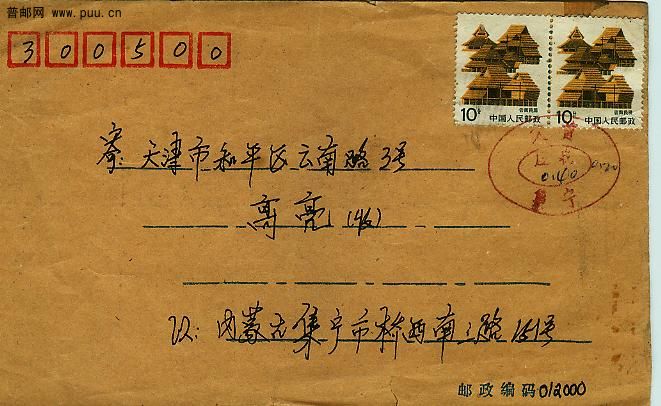 普邮网 www.puu.cn
300500
云南民居
10分
中国人民邮政
云南民居
10分
中国人民邮政
寄: 天津市和平区云南路3号
高亮(收)
以: 内蒙古集宁市桥西南三路151号
邮政编码012000
0.40
0.20
宁